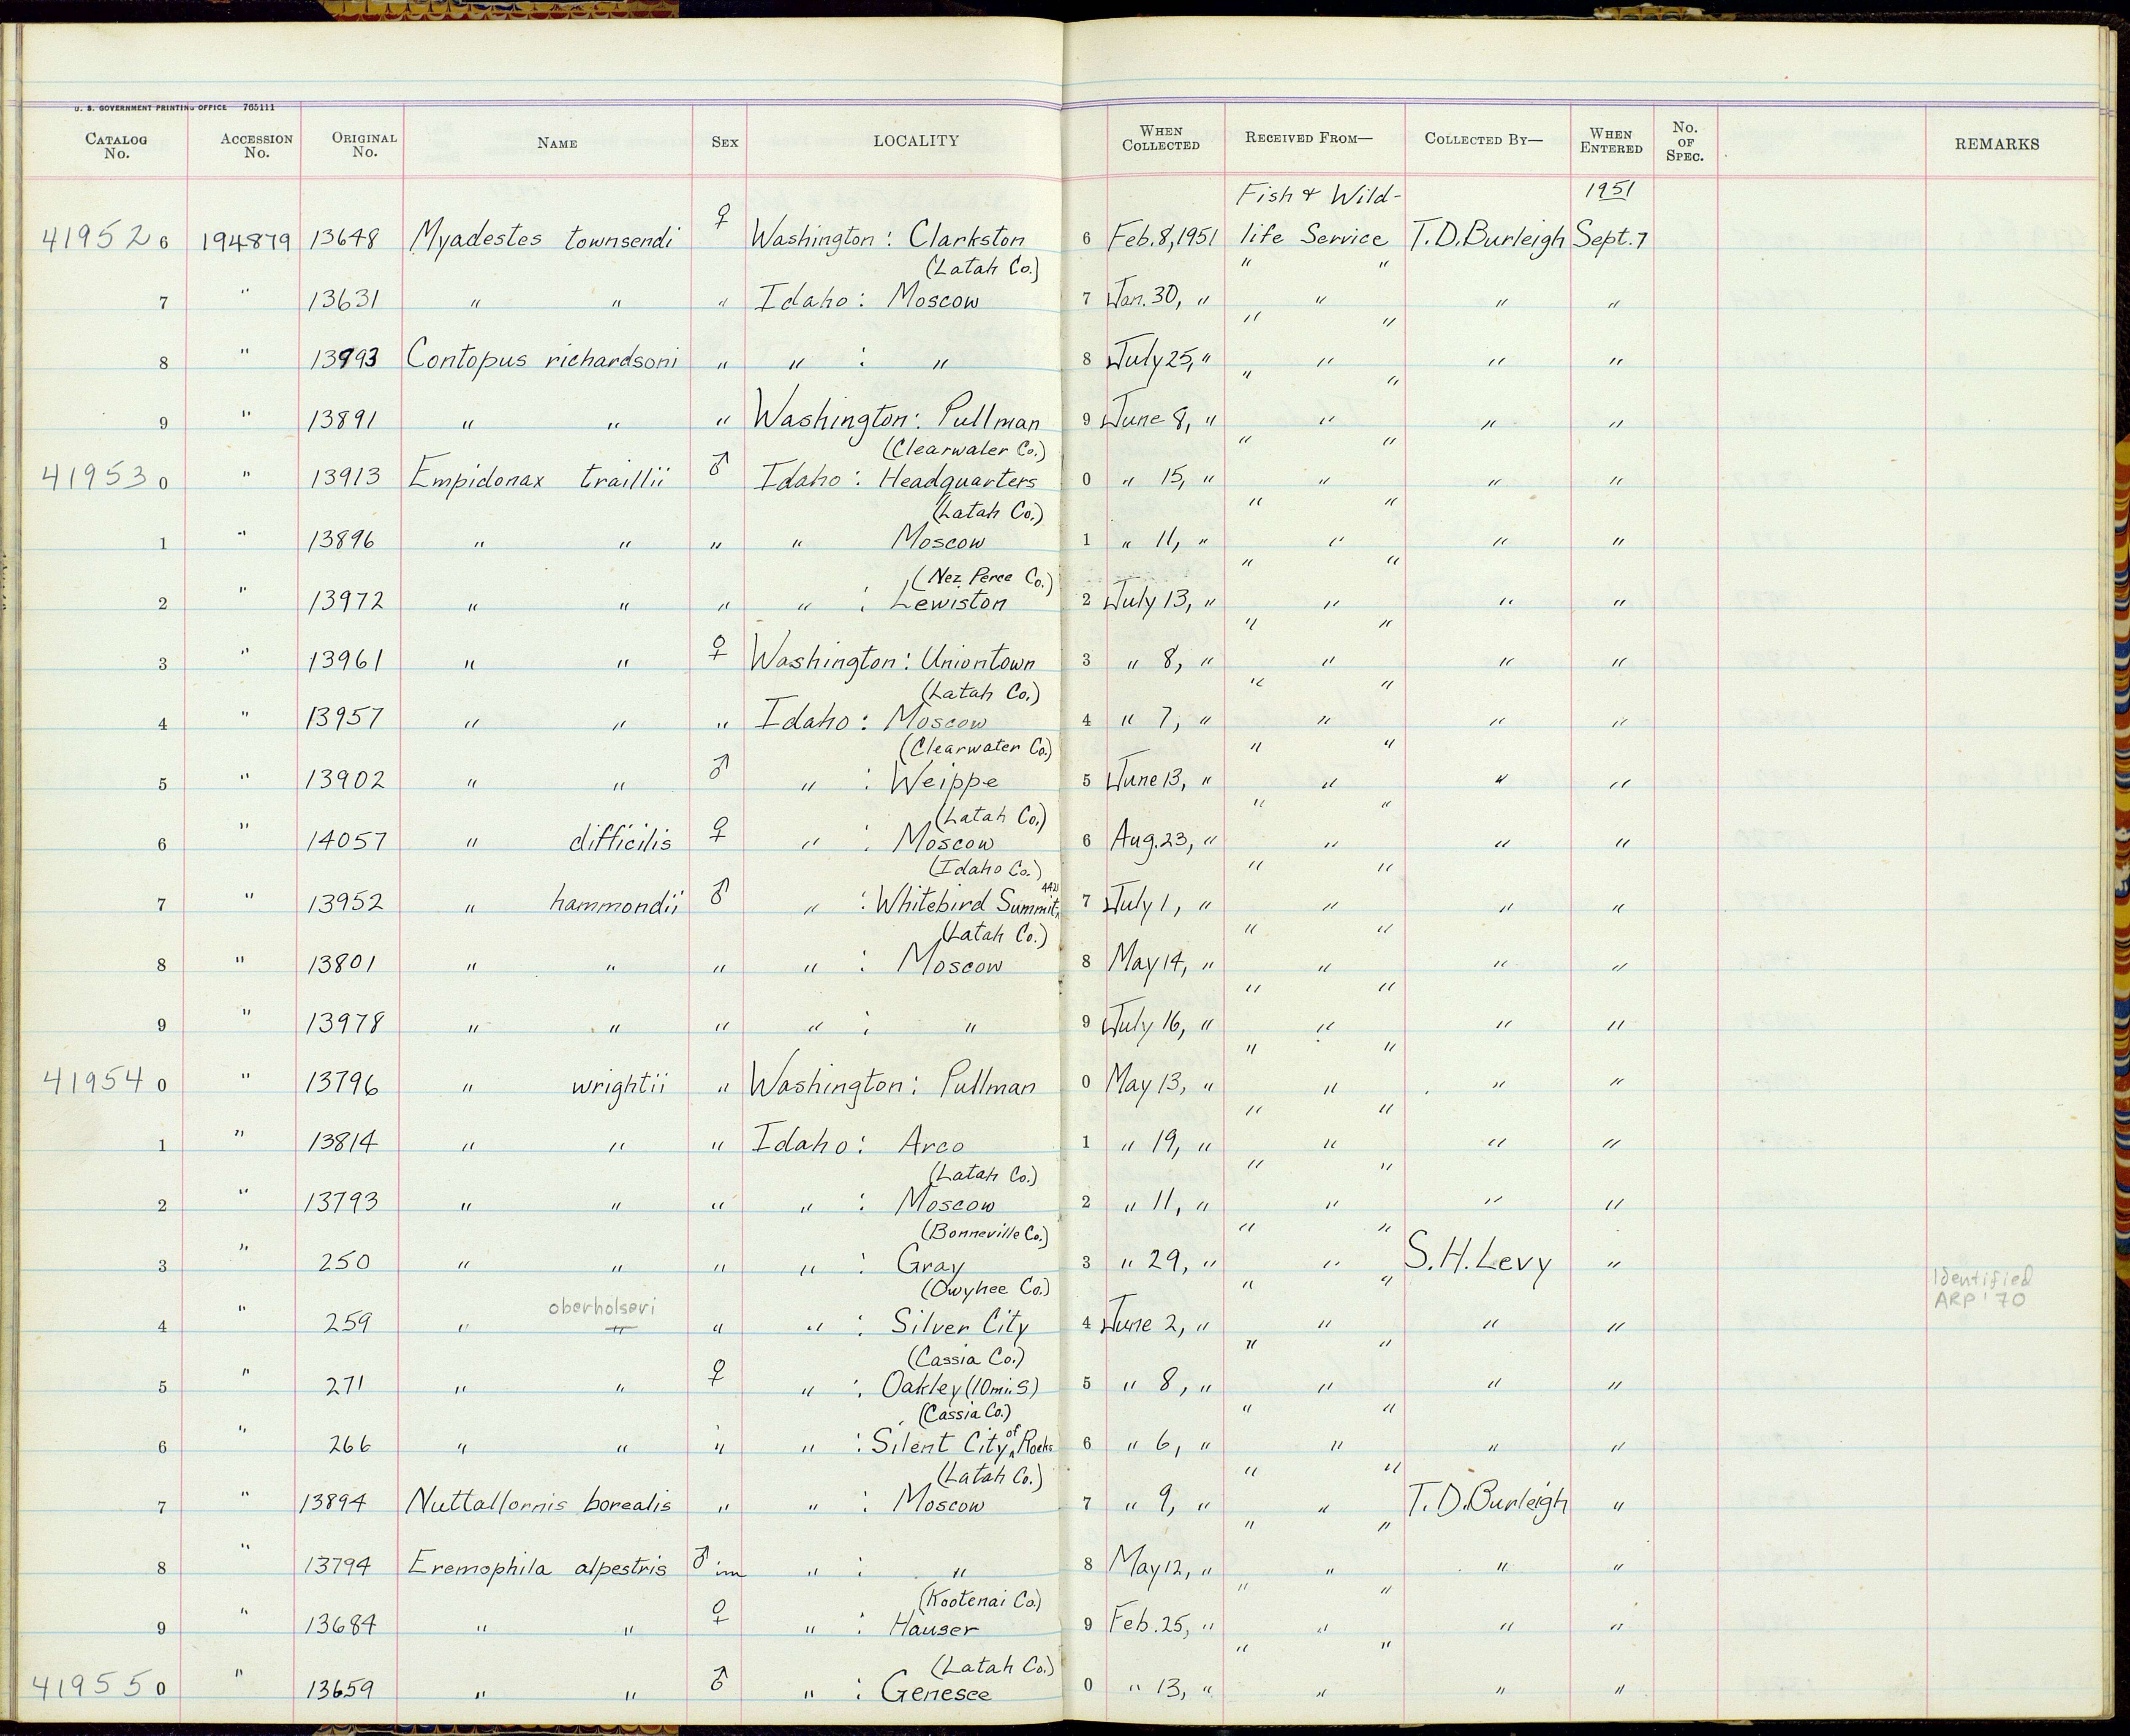 U. S. GOVERNMENT PRINTING OFFICE 765111
CATALOG No. ACCESSION No. ORIGINAL No. NAME SEX LOCALITY WHEN COLLECTED RECEIVED FROM— COLLECTED BY— WHEN ENTERED No. OF SPEC. REMARKS
Fish & Wild- 1951
41952 6 194879 13648 Myadestes townsendi ♀ Washington: Clarkston 6 Feb. 8, 1951 life Service T.D.Burleigh Sept. 7
(Latah Co.) " "
7 " 13631 " " " Idaho: Moscow 7 Jan. 30, " " " "
" "
8 " 13993 Contopus richardsoni " " : " 8 July 25, " " " "
" "
9 " 13891 " " " Washington: Pullman 9 June 8, " " " "
(Clearwater Co.) " "
41953 0 " 13913 Empidonax traillii ♂ Idaho: Headquarters 0 " 15, " " " "
(Latah Co.) " "
1 " 13896 " " " " Moscow 1 " 11, " " " "
(Nez Perce Co.) " "
2 " 13972 " " " " : Lewiston 2 July 13, " " " "
" "
3 " 13961 " " ♀ Washington: Uniontown 3 " 8, " " " "
(Latah Co.) " "
4 " 13957 " " " Idaho: Moscow 4 " 7, " " " "
(Clearwater Co.) " "
5 " 13902 " " ♂ " : Weippe 5 June 13, " " " "
(Latah Co.) " "
6 " 14057 " difficilis ♀ " : Moscow 6 Aug. 23, " " " "
(Idaho Co.) " "
7 " 13952 " hammondii ♂ " : Whitebird Summit, 7 July 1, " " " "
(Latah Co.) " "
8 " 13801 " " " " : Moscow 8 May 14, " " " "
" "
9 " 13978 " " " " : " 9 July 16, " " " "
" "
41954 0 " 13796 " wrightii " Washington: Pullman 0 May 13, " " " "
" "
1 " 13814 " " " Idaho: Arco 1 " 19, " " " "
(Latah Co.) " "
2 " 13793 " " " " : Moscow 2 " 11, " " " "
(Bonneville Co.) " "
3 " 250 " " " " : Gray 3 " 29, " " S.H.Levy "
(Owyhee Co.) " " Identified
oberholseri ARP '70
4 " 259 " " " " : Silver City 4 June 2, " " " "
(Cassia Co.) " "
5 " 271 " " ♀ " : Oakley (10mi.S) 5 " 8, " " " "
(Cassia Co.) " "
6 " 266 " " " " : Silent City of Rocks 6 " 6, " " " "
(Latah Co.) " "
7 " 13894 Nuttallornis borealis " " : Moscow 7 " 9, " " T.D.Burleigh "
" "
8 " 13794 Eremophila alpestris ♂ im " : " 8 May 12, " " " "
(Kootenai Co.) " "
9 " 13684 " " ♀ " : Hauser 9 Feb. 25, " " " "
(Latah Co.) " "
41955 0 " 13659 " " ♂ " : Genesee 0 " 13, " " " "